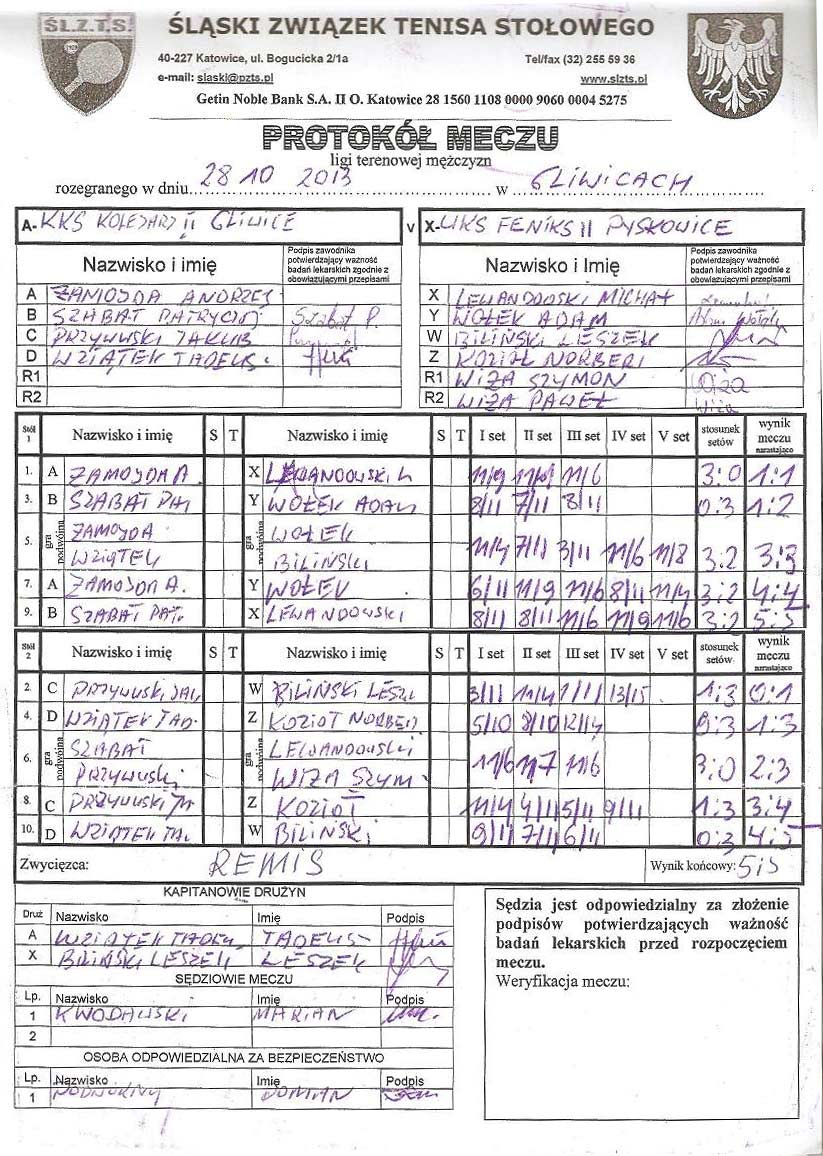 ŚL.Z.T.S.
ŚLĄSKI ZWIĄZEK TENISA STOŁOWEGO
40-227 Katowice, ul. Bogucicka 2/1a Tel/fax (32) 255 59 36
e-mail: slaski@pzts.pl www.slzts.pl
Getin Noble Bank S.A. II O. Katowice 28 1560 1108 0000 9060 0004 5275
PROTOKÓŁ MECZU
ligi terenowej mężczyzn
rozegranego w dniu 28 10 2013 w GLIWICACH
A- KKS KOLEJARZ II GLIWICE v X- UKS FENIKS II PYSKOWICE
Nazwisko i imię Podpis zawodnika potwierdzający ważność badań lekarskich zgodnie z obowiązującymi przepisami Nazwisko i Imię Podpis zawodnika potwierdzający ważność badań lekarskich zgodnie z obowiązującymi przepisami
A ZAMOJDA ANDRZEJ X LEWANDOWSKI MICHAŁ
B SZABAT PATRYCJA Szabat P. Y WOŁEK ADAM
C PRZYWUSKI JAKUB W BILIŃSKI LESZEK
D WZIĄTEK TADEUS. Z KOZIOŁ NORBERT
R1 R1 WIZA SZYMON Wiza
R2 R2 WIZA PAWEŁ Wiza
Stół 1 Nazwisko i imię S T Nazwisko i imię S T I set II set III set IV set V set stosunek setów wynik meczu narastająco
1. A ZAMOJDA A X LEWANDOWSKI M 11/9 11/9 11/6 3:0 1:1
3. B SZABAT PAT Y WOŁEK ADAM 8/11 7/11 8/11 0:3 1:2
5. gra podwójna ZAMOJDA WZIĄTEK gra podwójna WOŁEK BILIŃSKI 11/4 7/11 3/11 11/6 11/8 3:2 3:3
7. A ZAMOJDA A. Y WOŁEK 6/11 11/9 11/6 8/11 11/4 3:2 4:4
9. B SZABAT PAT. X LEWANDOWSKI 8/11 8/11 11/6 11/9 11/6 3:2 5:5
Stół 2 Nazwisko i imię S T Nazwisko i imię S T I set II set III set IV set V set stosunek setów wynik meczu narastająco
2. C PRZYWUSKI JAK W BILIŃSKI LESZ 3/11 11/4 7/11 13/15 1:3 0:1
4. D WZIĄTEK TAD. Z KOZIOŁ NORBER 5/10 8/10 12/14 0:3 1:3
6. gra podwójna SZABAT PRZYWUSKI gra podwójna LEWANDOWSKI WIZA SZYM 11/6 11/7 11/6 3:0 2:3
8. C PRZYWUSKI JA Z KOZIOŁ 11/4 4/11 5/11 9/11 1:3 3:4
10. D WZIĄTEK TA. W BILIŃSKI 9/11 7/11 6/11 0:3 4:5
Zwycięzca: REMIS Wynik końcowy: 5:5
KAPITANOWIE DRUŻYN
Druż Nazwisko Imię Podpis
A WZIĄTEK TADEU, TADEUS
X BILIŃSKI LESZEK LESZEK
SĘDZIOWIE MECZU
Lp. Nazwisko Imię Podpis
1 KWODAWSKI MARIAN
2
OSOBA ODPOWIEDZIALNA ZA BEZPIECZEŃSTWO
Lp. Nazwisko Imię Podpis
1
Sędzia jest odpowiedzialny za złożenie
podpisów potwierdzających ważność
badań lekarskich przed rozpoczęciem
meczu.
Weryfikacja meczu: